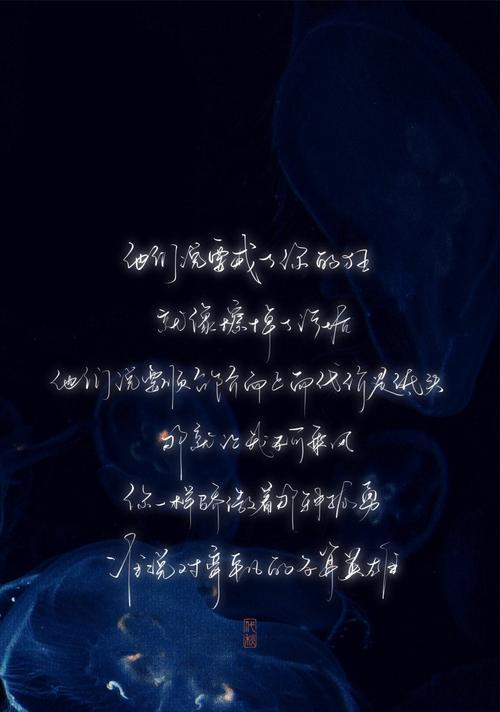 他们说要戒了你的狂
就像擦掉了污垢
他们说要顺台阶而上而代价是低头
那就让我不可乘风
你一样骄傲着那种孤勇
谁说对弈平凡的不算英雄